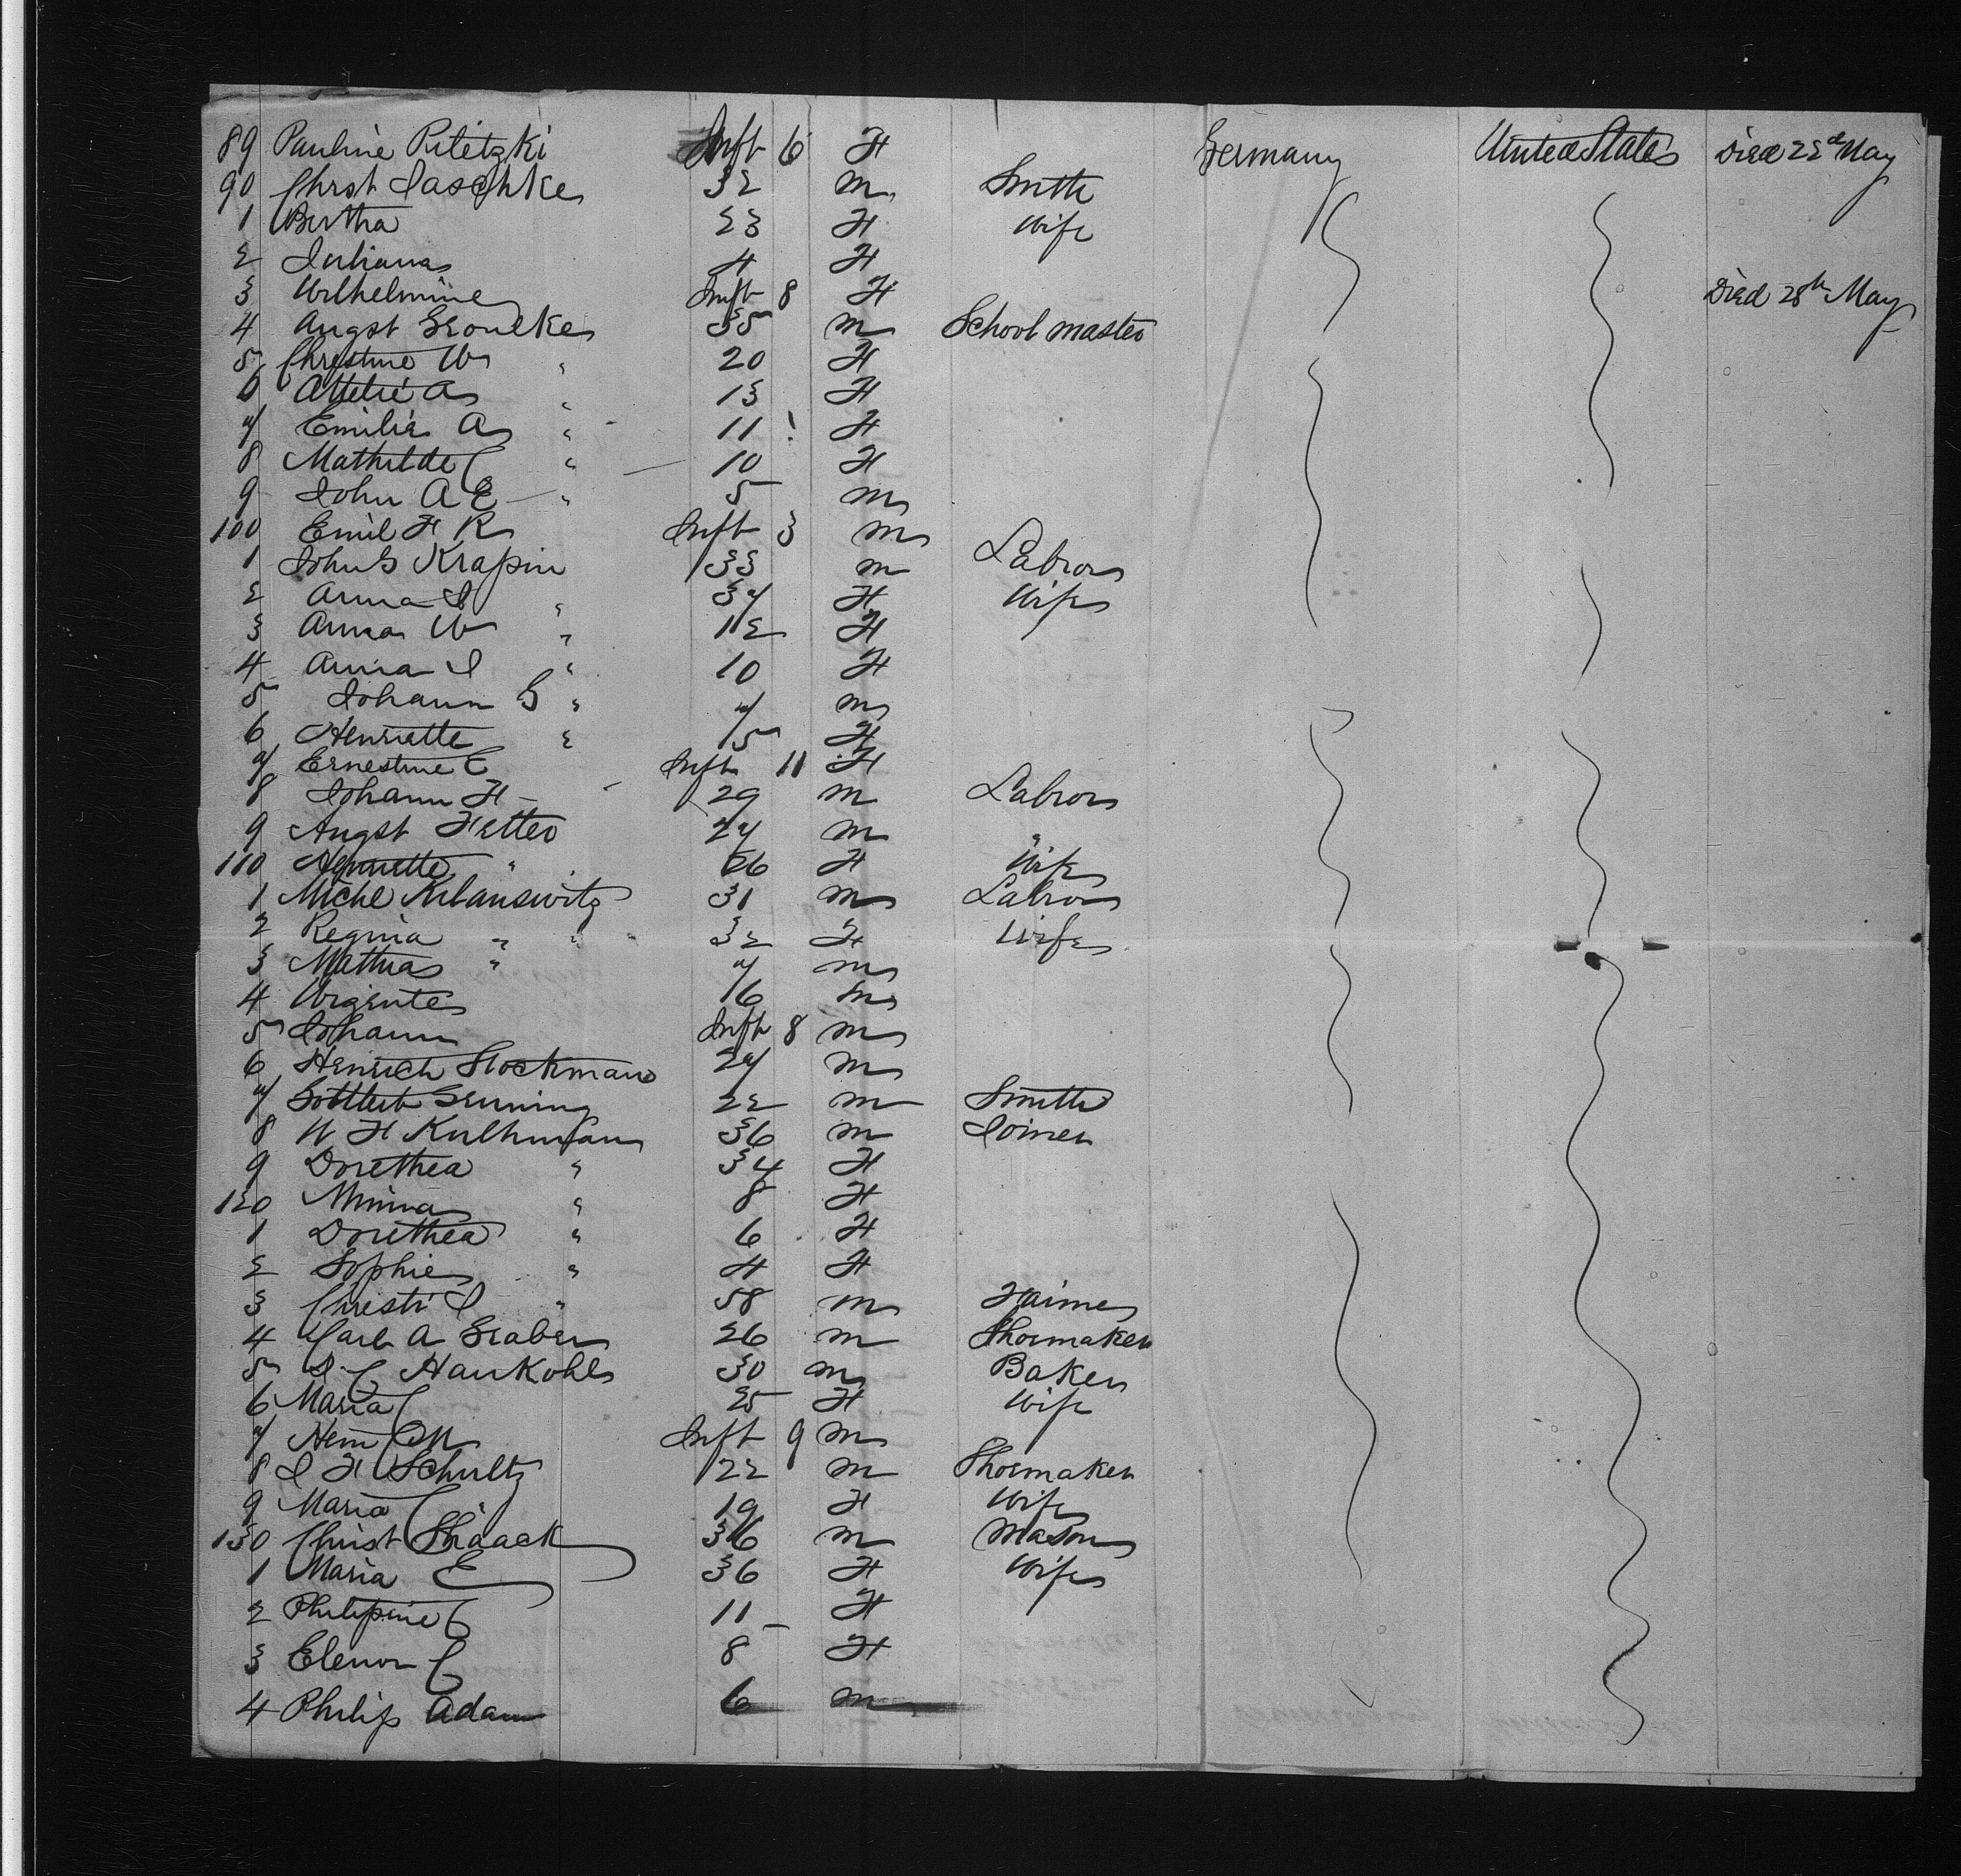 89 Pauline Pilitzki Inft 6 F Germany United States Died 22d May
90 Christ Jaschke 32 m Smith
1 Bertha 23 F Wife
2 Juliana 4 F
3 Wilhelmine Inft 8 F Died 28th May
4 Augst 35 m School master
5 Christine W " 20 F
6 Attilie A " 13 F
7 Emilie A " 11 F
8 Mathilde C " 10 F
9 John A E " 5 m
100 Emil F R Inft 3 m
1 John G Krapin 33 m Labror
2 Anna J " 37 F Wife
3 Anna W " 12 F
4 Anna J " 10 F
5 Johann G " 7 m
6 Henriette " 5 F
7 Ernestine C Inft 11 F
8 Johann F 29 m Labror
9 Augst Fetter 27 m "
110 Henriette " 26 F Wife
1 Michl 31 m Labror
2 Regina " 32 F Wife
3 Mathias " 7 m
4 6 m
5 Johann Inft 8 m
6 Heinrich Stockmann 27 m
7 Gottlieb Genning 22 m Smith
8 W F Kulhmann 36 m Joiner
9 Dorethea " 34 F
120 Minna " 8 F
1 Dorethea " 6 F
2 Sophie " 4 F
3 Christi J " 58 m Farmer
4 Carl A Graber 26 m Shoemaker
5 J C Hankohl 30 m Baker
6 Maria C 25 F Wife
7 Hein C M Inft 9 m
8 J F Schultz 22 m Shoemaker
9 Maria C 19 F Wife
130 Christ Shaack 36 m Mason
1 Maria E 36 F Wife
2 Philipine C 11 F
3 Elenor C 8 F
4 Philip Adam 6 m